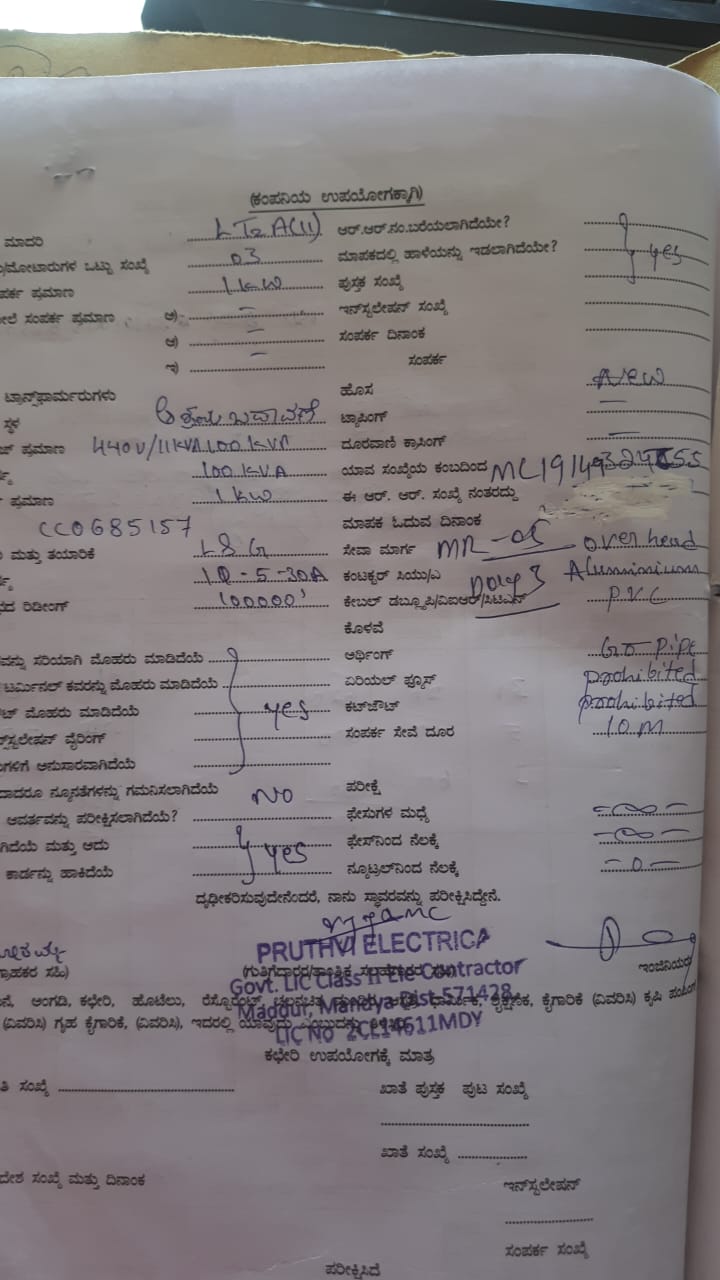 (ಕಂಪನಿಯ ಉಪಯೋಗಕ್ಕಾಗಿ)
ಮಾದರಿ LT2 A(II) ಆರ್.ಆರ್.ನಂ.ಬರೆಯಲಾಗಿದೆಯೇ?
/ಮೋಟಾರುಗಳ ಒಟ್ಟು ಸಂಖ್ಯೆ 03 ಮಾಪಕದಲ್ಲಿ ಹಾಳೆಯನ್ನು ಇಡಲಾಗಿದೆಯೇ? yes
ಪ್ರಮಾಣ 1 KW ಪುಸ್ತಕ ಸಂಖ್ಯೆ
ಸಂಪರ್ಕ ಪ್ರಮಾಣ ಅ) – ಇನ್‌ಸ್ಟಲೇಷನ್ ಸಂಖ್ಯೆ
ಆ) – ಸಂಪರ್ಕ ದಿನಾಂಕ
ಇ) – ಸಂಪರ್ಕ
ಟ್ರಾನ್ಸ್‌ಫಾರ್ಮರುಗಳು ಹೊಸ New
ಸ್ಥಳ ಆಶ್ರಯ ಬಡಾವಣೆ ಟ್ಯಾಪಿಂಗ್ –
ಪ್ರಮಾಣ 440V/11KVA 100 KVA ದೂರವಾಣಿ ಕ್ರಾಸಿಂಗ್ –
100 KVA ಯಾವ ಸಂಖ್ಯೆಯ ಕಂಬದಿಂದ
ಪ್ರಮಾಣ 1 KW ಈ ಆರ್. ಆರ್. ಸಂಖ್ಯೆ ನಂತರದ್ದು
CC0685157 ಮಾಪಕ ಓದುವ ದಿನಾಂಕ
ಮತ್ತು ತಯಾರಿಕೆ L&G ಸೇವಾ ಮಾರ್ಗ MR-05 over head
10-5-30A ಕಂಟಕ್ಟರ್ ಸಿಯು/ಎ Aluminium
ರಿಡೀಂಗ್ '00000' ಕೇಬಲ್ ಡಬ್ಲ್ಯೂಪಿ/ವಿಐಆರ್/ಸಿಟಿಎಸ್ PVC
ಕೊಳವೆ
ಸರಿಯಾಗಿ ಮೊಹರು ಮಾಡಿದೆಯೆ ಅರ್ಥಿಂಗ್ GI Pipe
ಟರ್ಮಿನಲ್ ಕವರನ್ನು ಮೊಹರು ಮಾಡಿದೆಯೆ ಏರಿಯಲ್ ಫ್ಯೂಸ್ prohibited
ಮೊಹರು ಮಾಡಿದೆಯೆ yes ಕಟ್‌ಔಟ್ prohibited
ವೈರಿಂಗ್ ಸಂಪರ್ಕ ಸೇವೆ ದೂರ 10 M
ಅನುಸಾರವಾಗಿದೆಯೆ
ನ್ಯೂನತೆಗಳನ್ನು ಗಮನಿಸಲಾಗಿದೆಯೆ NO ಪರೀಕ್ಷೆ
ಆವರ್ತವನ್ನು ಪರೀಕ್ಷಿಸಲಾಗಿದೆಯೆ? ಫೇಸುಗಳ ಮಧ್ಯೆ –∞–
ಮತ್ತು ಅದು yes ಫೇಸ್‌ನಿಂದ ನೆಲಕ್ಕೆ –∞–
ಕಾರ್ಡನ್ನು ಹಾಕಿದೆಯೆ ನ್ಯೂಟ್ರಲ್‌ನಿಂದ ನೆಲಕ್ಕೆ –0–
ದೃಢೀಕರಿಸುವುದೇನೆಂದರೆ, ನಾನು ಸ್ಥಾವರವನ್ನು ಪರೀಕ್ಷಿಸಿದ್ದೇನೆ.
PRUTHVI ELECTRICA
ಗ್ರಾಹಕರ ಸಹಿ) ಇಂಜಿನಿಯರ
Govt. LIC Class II Ele Contractor
ಅಂಗಡಿ, ಕಛೇರಿ, ಹೋಟೆಲು, ರೆಸ್ಟೋರೆಂಟ್, ಕೈಗಾರಿಕೆ (ವಿವರಿಸಿ) ಕೃಷಿ
Maddur, Mandya Dist-571428
(ವಿವರಿಸಿ) ಗೃಹ ಕೈಗಾರಿಕೆ, (ವಿವರಿಸಿ), ಇದರಲ್ಲಿ
LIC No 2CL14611MDY
ಕಛೇರಿ ಉಪಯೋಗಕ್ಕೆ ಮಾತ್ರ
ಸಂಖ್ಯೆ ಖಾತೆ ಪುಸ್ತಕ ಪುಟ ಸಂಖ್ಯೆ
ಖಾತೆ ಸಂಖ್ಯೆ
ಸಂಖ್ಯೆ ಮತ್ತು ದಿನಾಂಕ ಇನ್‌ಸ್ಟಲೇಷನ್
ಸಂಪರ್ಕ ಸಂಖ್ಯೆ
ಪರೀಕ್ಷಿಸಿದೆ